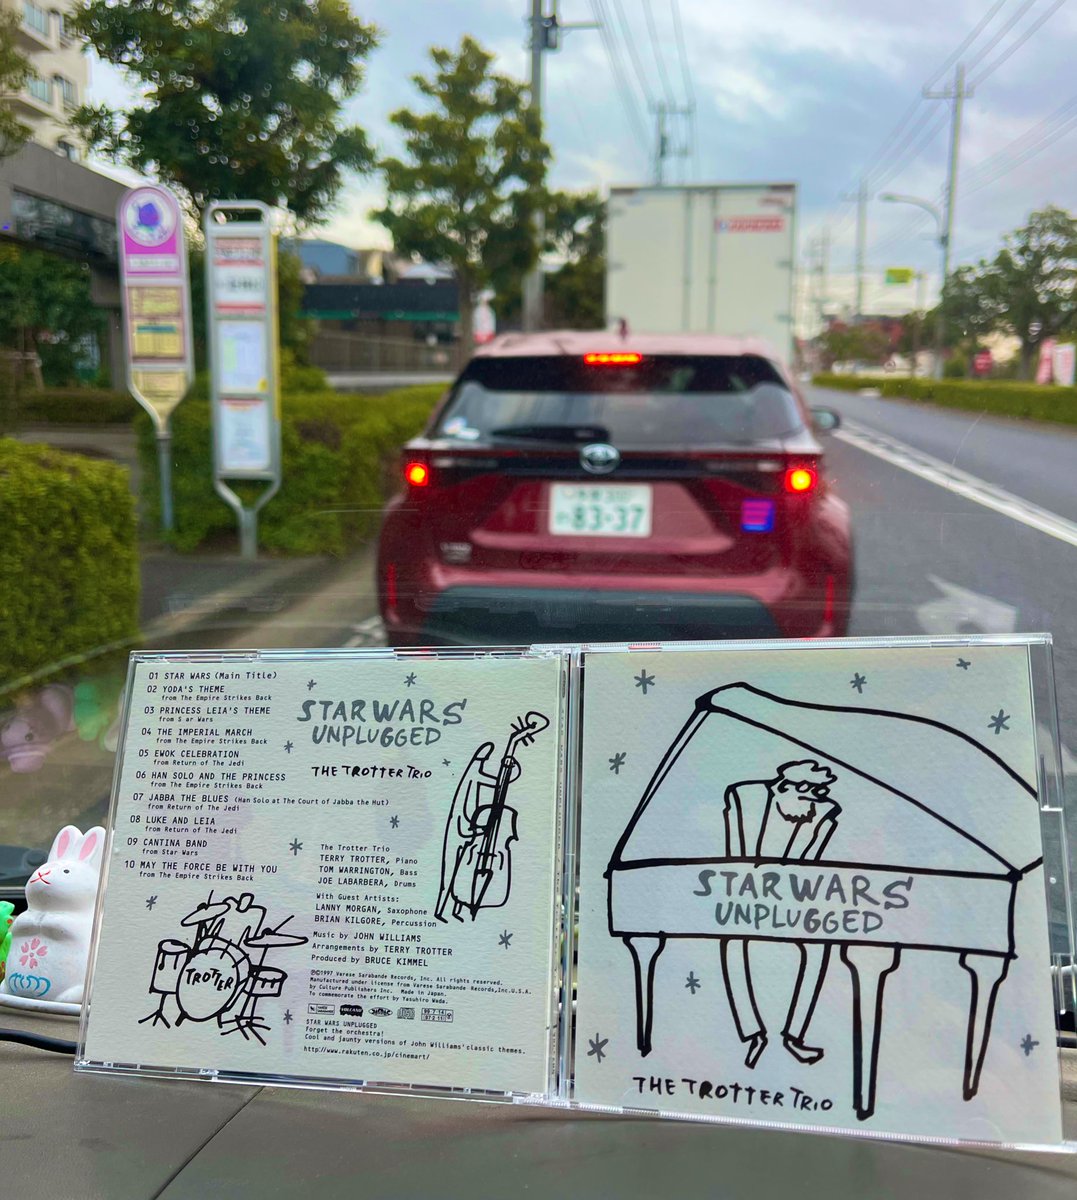 83-37
01 STAR WARS (Main Title)
02 YODA'S THEME
from The Empire Strikes Back
03 PRINCESS LEIA'S THEME
from S ar Wars
04 THE IMPERIAL MARCH
from The Empire Strikes Back
05 EWOK CELEBRATION
from Return of The Jedi
06 HAN SOLO AND THE PRINCESS
from The Empire Strikes Back
07 JABBA THE BLUES (Han Solo at The Court of Jabba the Hut)
from Return of The Jedi
08 LUKE AND LEIA
from Return of The Jedi
09 CANTINA BAND
from Star Wars
10 MAY THE FORCE BE WITH YOU
from The Empire Strikes Back
STAR WARS
UNPLUGGED
THE TROTTER TRIO
The Trotter Trio
TERRY TROTTER, Piano
TOM WARRINGTON, Bass
JOE LABARBERA, Drums
With Guest Artists:
LANNY MORGAN, Saxophone
BRIAN KILGORE, Percussion
Music by JOHN WILLIAMS
Arrangements by TERRY TROTTER
Produced by BRUCE KIMMEL
℗©1997 Varese Sarabande Records, Inc. All rights reserved.
Manufactured under license from Varese Sarabande Records,Inc.U.S.A.
by Culture Publishers Inc. Made in Japan.
To commemorate the effort by Yasuhiro Wada.
STAR WARS UNPLUGGED
Forget the orchestra!
Cool and jaunty versions of John Williams'classic themes.
http://www.rakuten.co.jp/cinemart/
TROTTER
STAR WARS
UNPLUGGED
THE TROTTER TRIO